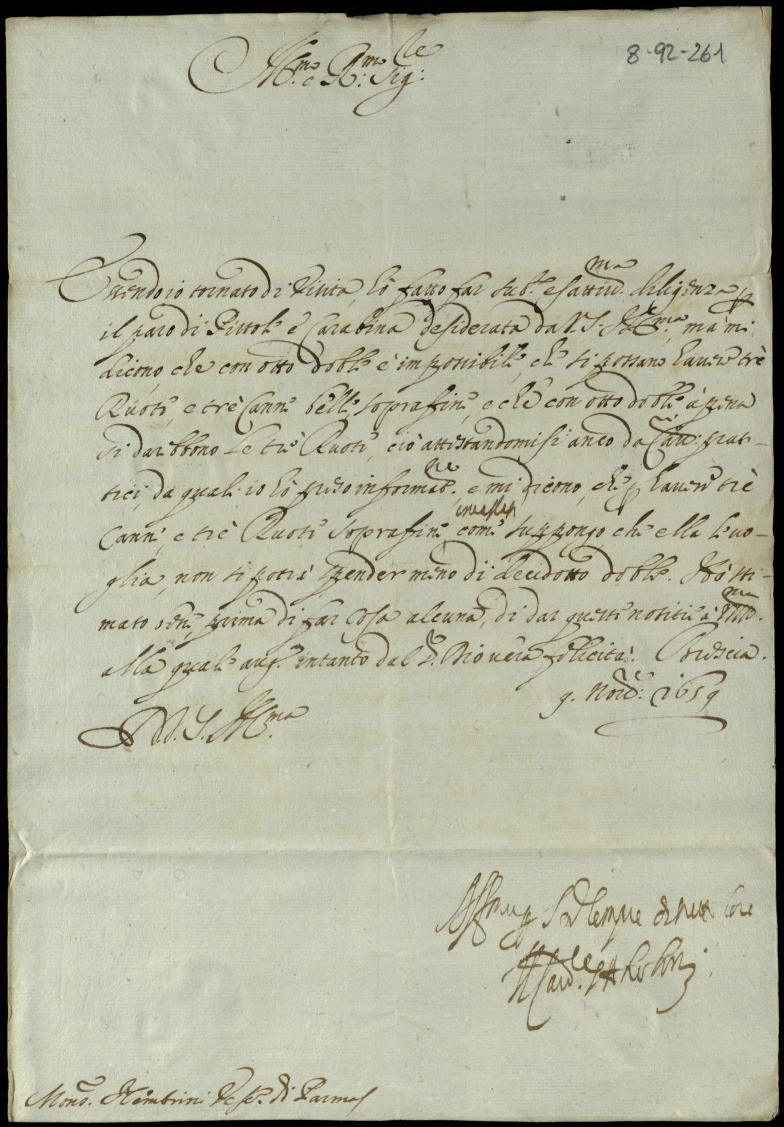 8-92-261
Ill.mo e R.mo Sig.re
Essendo io tornato di Visita, hò fatto far sub.o esattiss.ma diligenza p
il paro di Pistole e Carabina desiderata da V. S. Ill.ma, mà mi
dicono, che con otto doble è impossibile, che si possano havere trè
Ruote, e trè Canne belle soprafine, e che con otto doble à pena
si darebbono le trè Ruote, ciò attestandomisi anco da Cav.ri prat-
tici, da quali io hò preso informat.ne e mi dicono, che p havere trè
Canne, e trè Ruote soprafine come suppongo che ella le vo-
glia, non si potrà spender meno di decidotto doble. Hò sti-
mato bene, prima di far cosa alcuna, di dar queste notitie à V.S.Ill.ma
alla quale aug.o intanto dal S.r Dio vera felicità. Brescia.
9. Nov.e 1659
D. V. S. Ill.ma
Aff.mo p S.r sempre di vero core
Il Card.le Ottoboni
Mons.r Nembrini Vesc.o di Parma